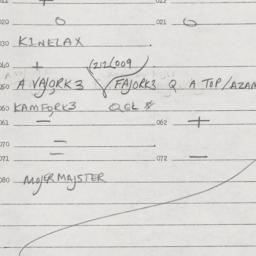 020 O 021 O
030 KINELAX
040 +
12/2/009
050 A VAJORK3 FAJORK3 Q A TOP/AZAN
060 KAMFORK3 QGL $
061 — 062 +
070 =
071 — 072 —
080 MOJERMAJSTER